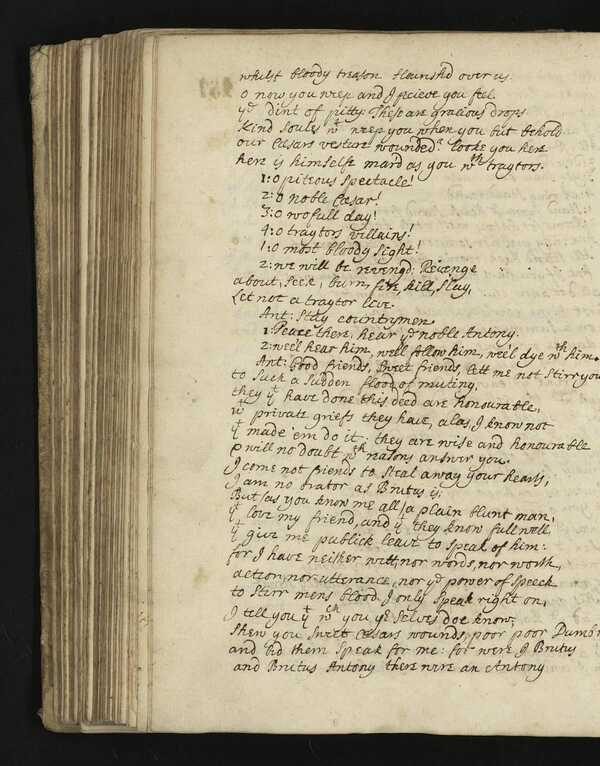 whilst bloody treason flourishd over us.
o now you weep and I pceive you feel
yᵉ dint of pitty: These are gracious drops
kind Souls wᵗ weep you when you but behold
our Cæsars vesture wounded? looke you here
here is himselfe mard as you wᵗʰ traytors.
1: o piteous spectacle!
2: o noble Cæsar!
3: o wofull day!
4: o traytors villains!
1: o most bloody sight!
2: we will be revengd: Revenge
about, seek, burn, fire, kill, slay,
Let not a traytor live.
Ant: Stay countrymen.
1: Peace there, hear yᵉ noble Antony.
2: we'el hear him, we'll follow him, we'el dye wᵗʰ him.
Ant: Good friends, sweet friends, let me not stirr you
to such a sudden flood of mutiny,
they yᵗ have done this deed are honourable,
wᵗ private griefs they have, alas, I know not
yᵗ made 'em do it; they are wise and honourable
& will no doubt wᵗʰ reasons answer you.
I come not friends to steal away your hearts,
I am no orator as Brutus is;
But (as you know me all) a plain blunt man,
yᵗ love my friend, and yᵗ they know full well
yᵗ give me publick leave to speak of him:
for I have neither witt, nor words, nor worth,
action, nor utterance, nor yᵉ power of speech
to stirr mens blood. I only speak right on,
I tell you yᵗ wᶜʰ you yᵉ selves doe know,
shew you sweet Cæsars wounds, poor poor Dumb
and bid them speak for me: for were I Brutus
and Brutus Antony there were an Antony